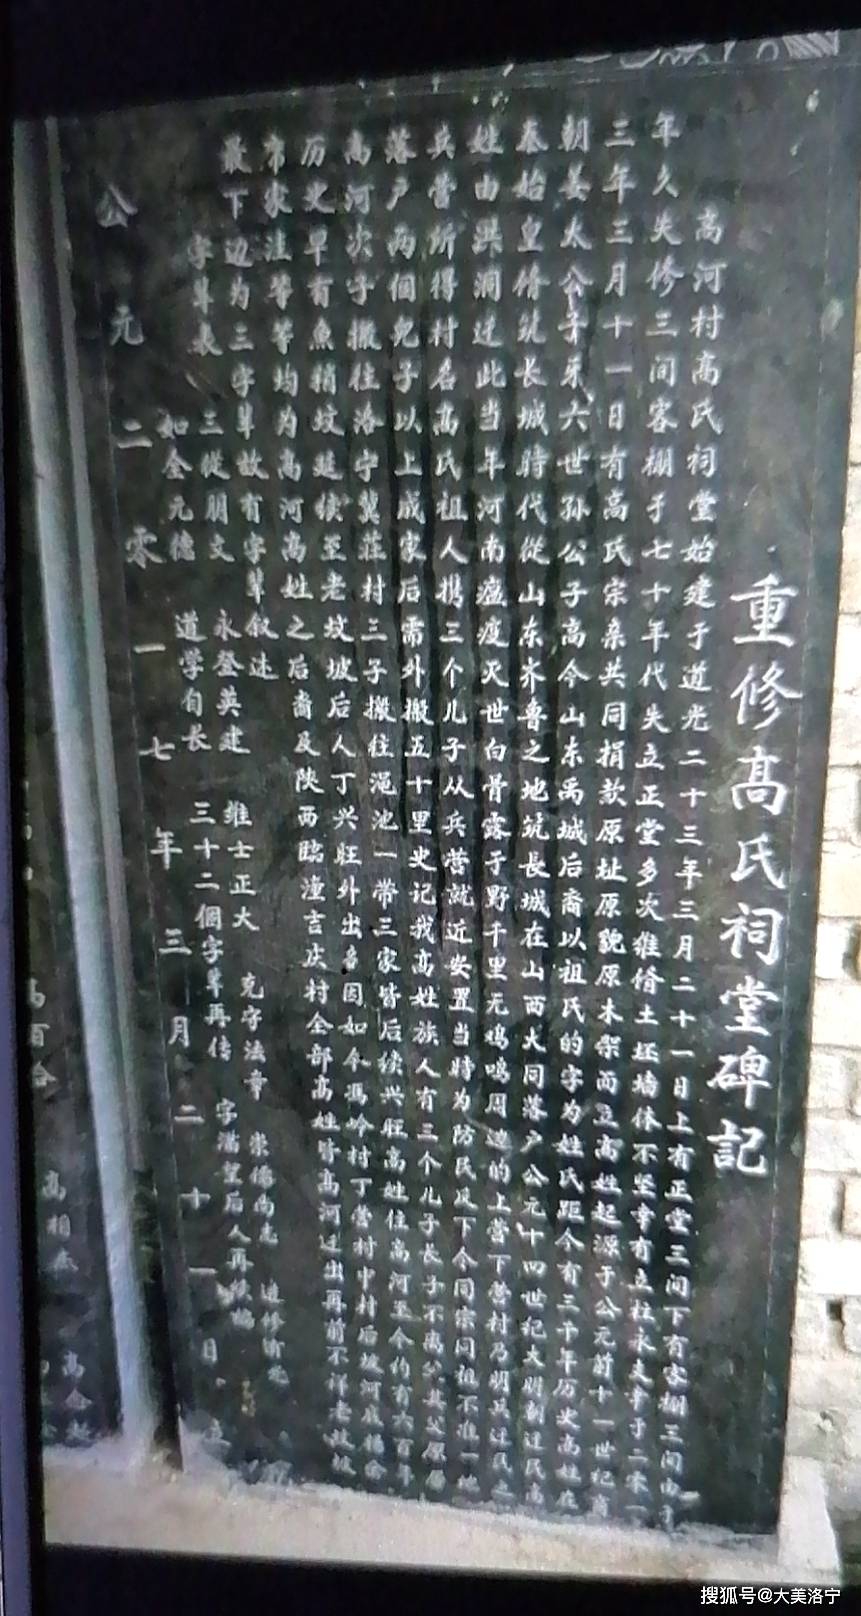 重修高氏祠堂碑記
高河村高氏祠堂始建于道光二十三年三月二十一日上有正堂三间下有客棚三间由于
年久失修三间客棚于七十年代失立正堂多次维脩土坯墙体不坚幸有立柱永支幸于二零一
三年三月十一日有高氏宗亲共同捐款原址原貌原木架而立高姓起源于公元前十一世纪
朝姜太公子牙六世孙公子高今山东禹城后裔以祖氏的字为姓氏距今有三千年历史高姓在
秦始皇脩筑长城時代從山东齐鲁之地筑長城在山西大同落户公元十四世纪大明制迁民高
姓由洪洞迁此当年河南瘟疫灭世白骨露于野千里无鸡鳴周边的上营下营村乃明兵迁民之
兵营所得村名高氏祖人携三个儿子从兵营就近安置当時为防民反下令同宗同祖不准一地
落户两個兒子以上成家后需外搬五十里史记我高姓族人有三个儿子长子不离父其父原居
高河次子搬住洛宁冀莊村三子搬往渑池一带三家皆后续兴旺高姓住高河至今约有六百年
历史早有魚稍坟延续至老坟坡后人丁兴旺外出多因如今馮岭村丁营村中村后坡河底
常家洼等等均为高河高姓之后裔及陕西臨潼吉庆村全部高姓皆高河迁出再前不祥老坟坡
最下边为三字辈故有字辈叙述
字辈表 三從朋文 永登英建 維士正大 克守法章 崇德尚志 道修
如金元德 道学自长 三十二個字辈再传 字满望后人再续编
公元二零一七年三月二十一日
高百合
高相
高合
搜狐号@大美洛宁